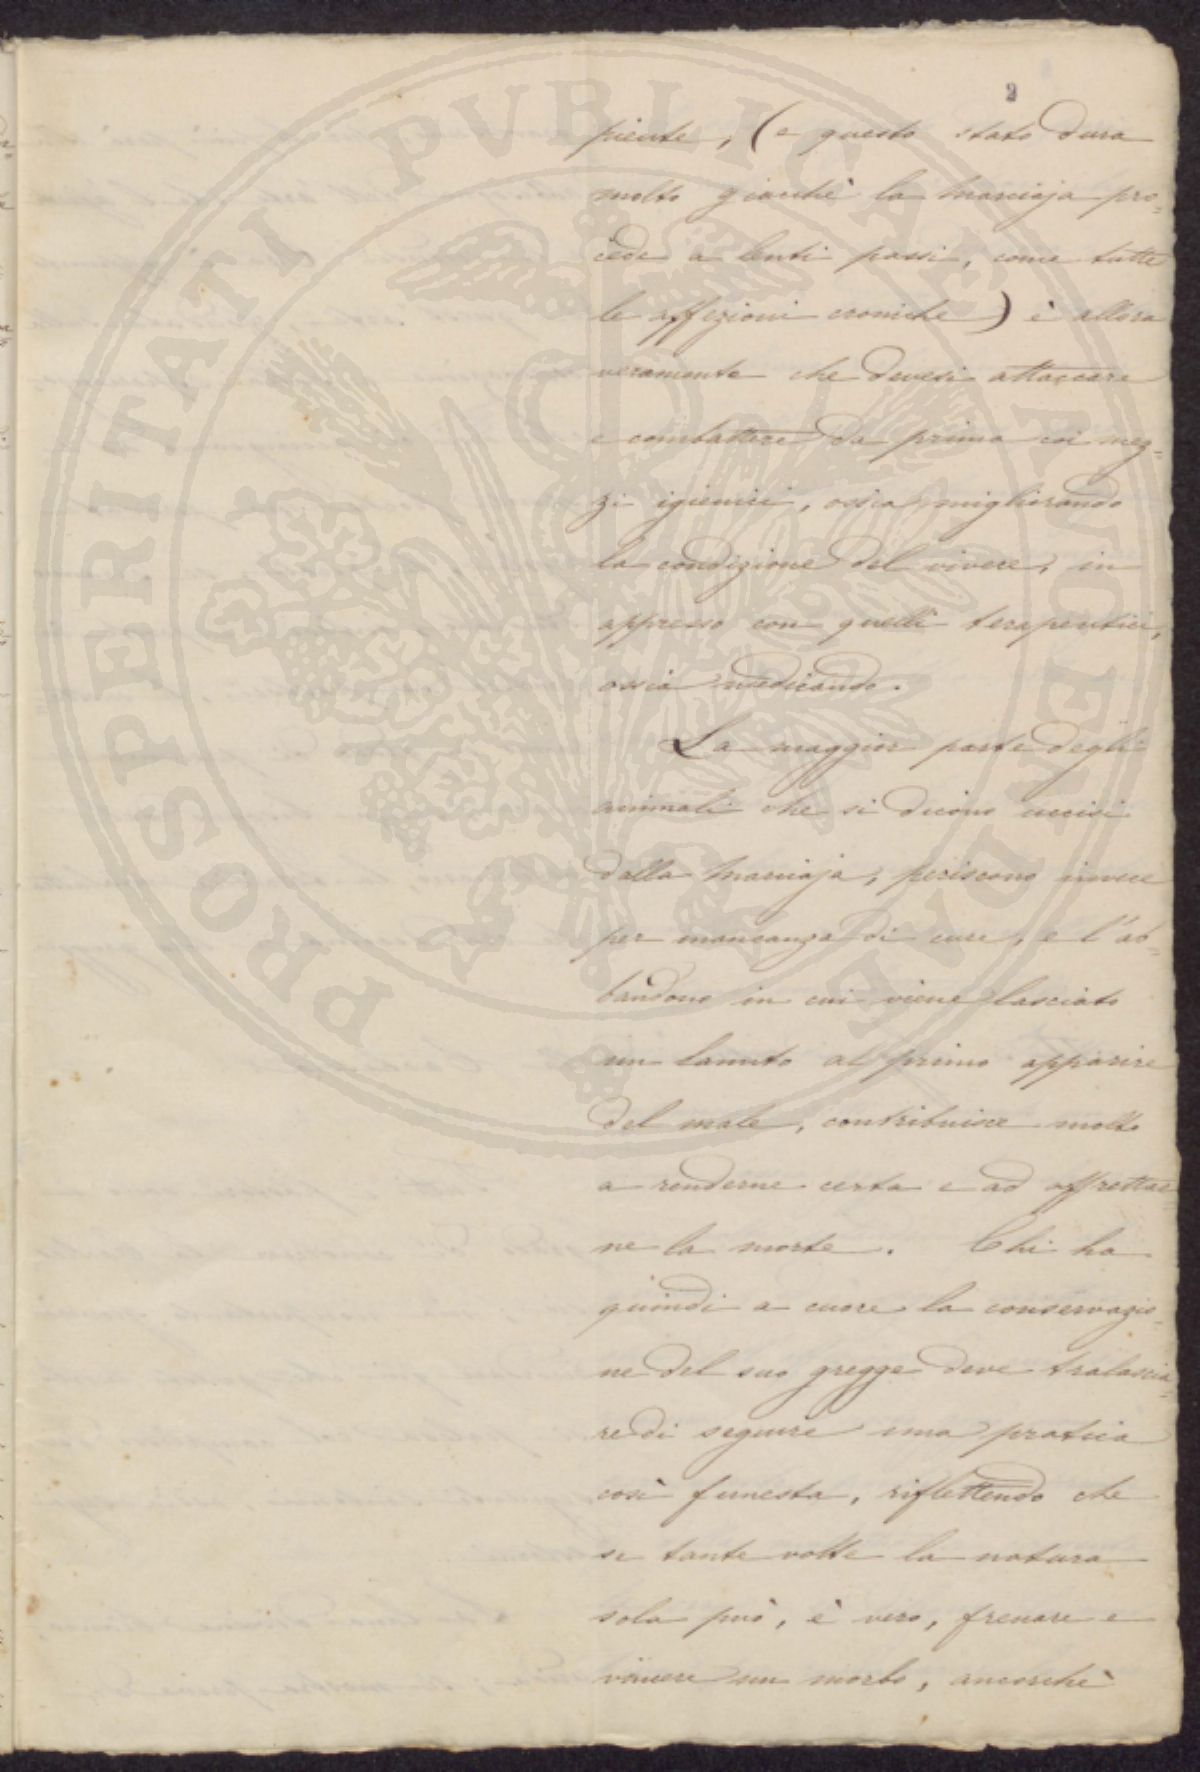 2
piente, (e questo stato dura
molto giacchè la marciaja pro=
cede a lenti passi, come tutte
le affezioni croniche) è allora
veramente che devesi attaccare
e combattere da prima coi mez=
zi igienici, ossia migliorando
la condizione del vivere, in
appresso con quelli terapeutici,
ossia medicando.
La maggior parte degli
animali che si dicono uccisi
dalla marciaja, periscono invece
per mancanza di cure, e l'ab=
bandono in cui viene lasciato
un lanuto al primo apparire
del male, contribuisce molto
a renderne certa e ad affrettar
ne la morte. Chi ha
quindi a cuore la conservazio=
ne del suo gregge deve tralascia=
re di seguire una pratica
così funesta, riflettendo che
se tante volte la natura
sola può, è vero, frenare e
vincere un morbo, ancorchè
PROSPERITATI PUBLICAE AVGENDAE